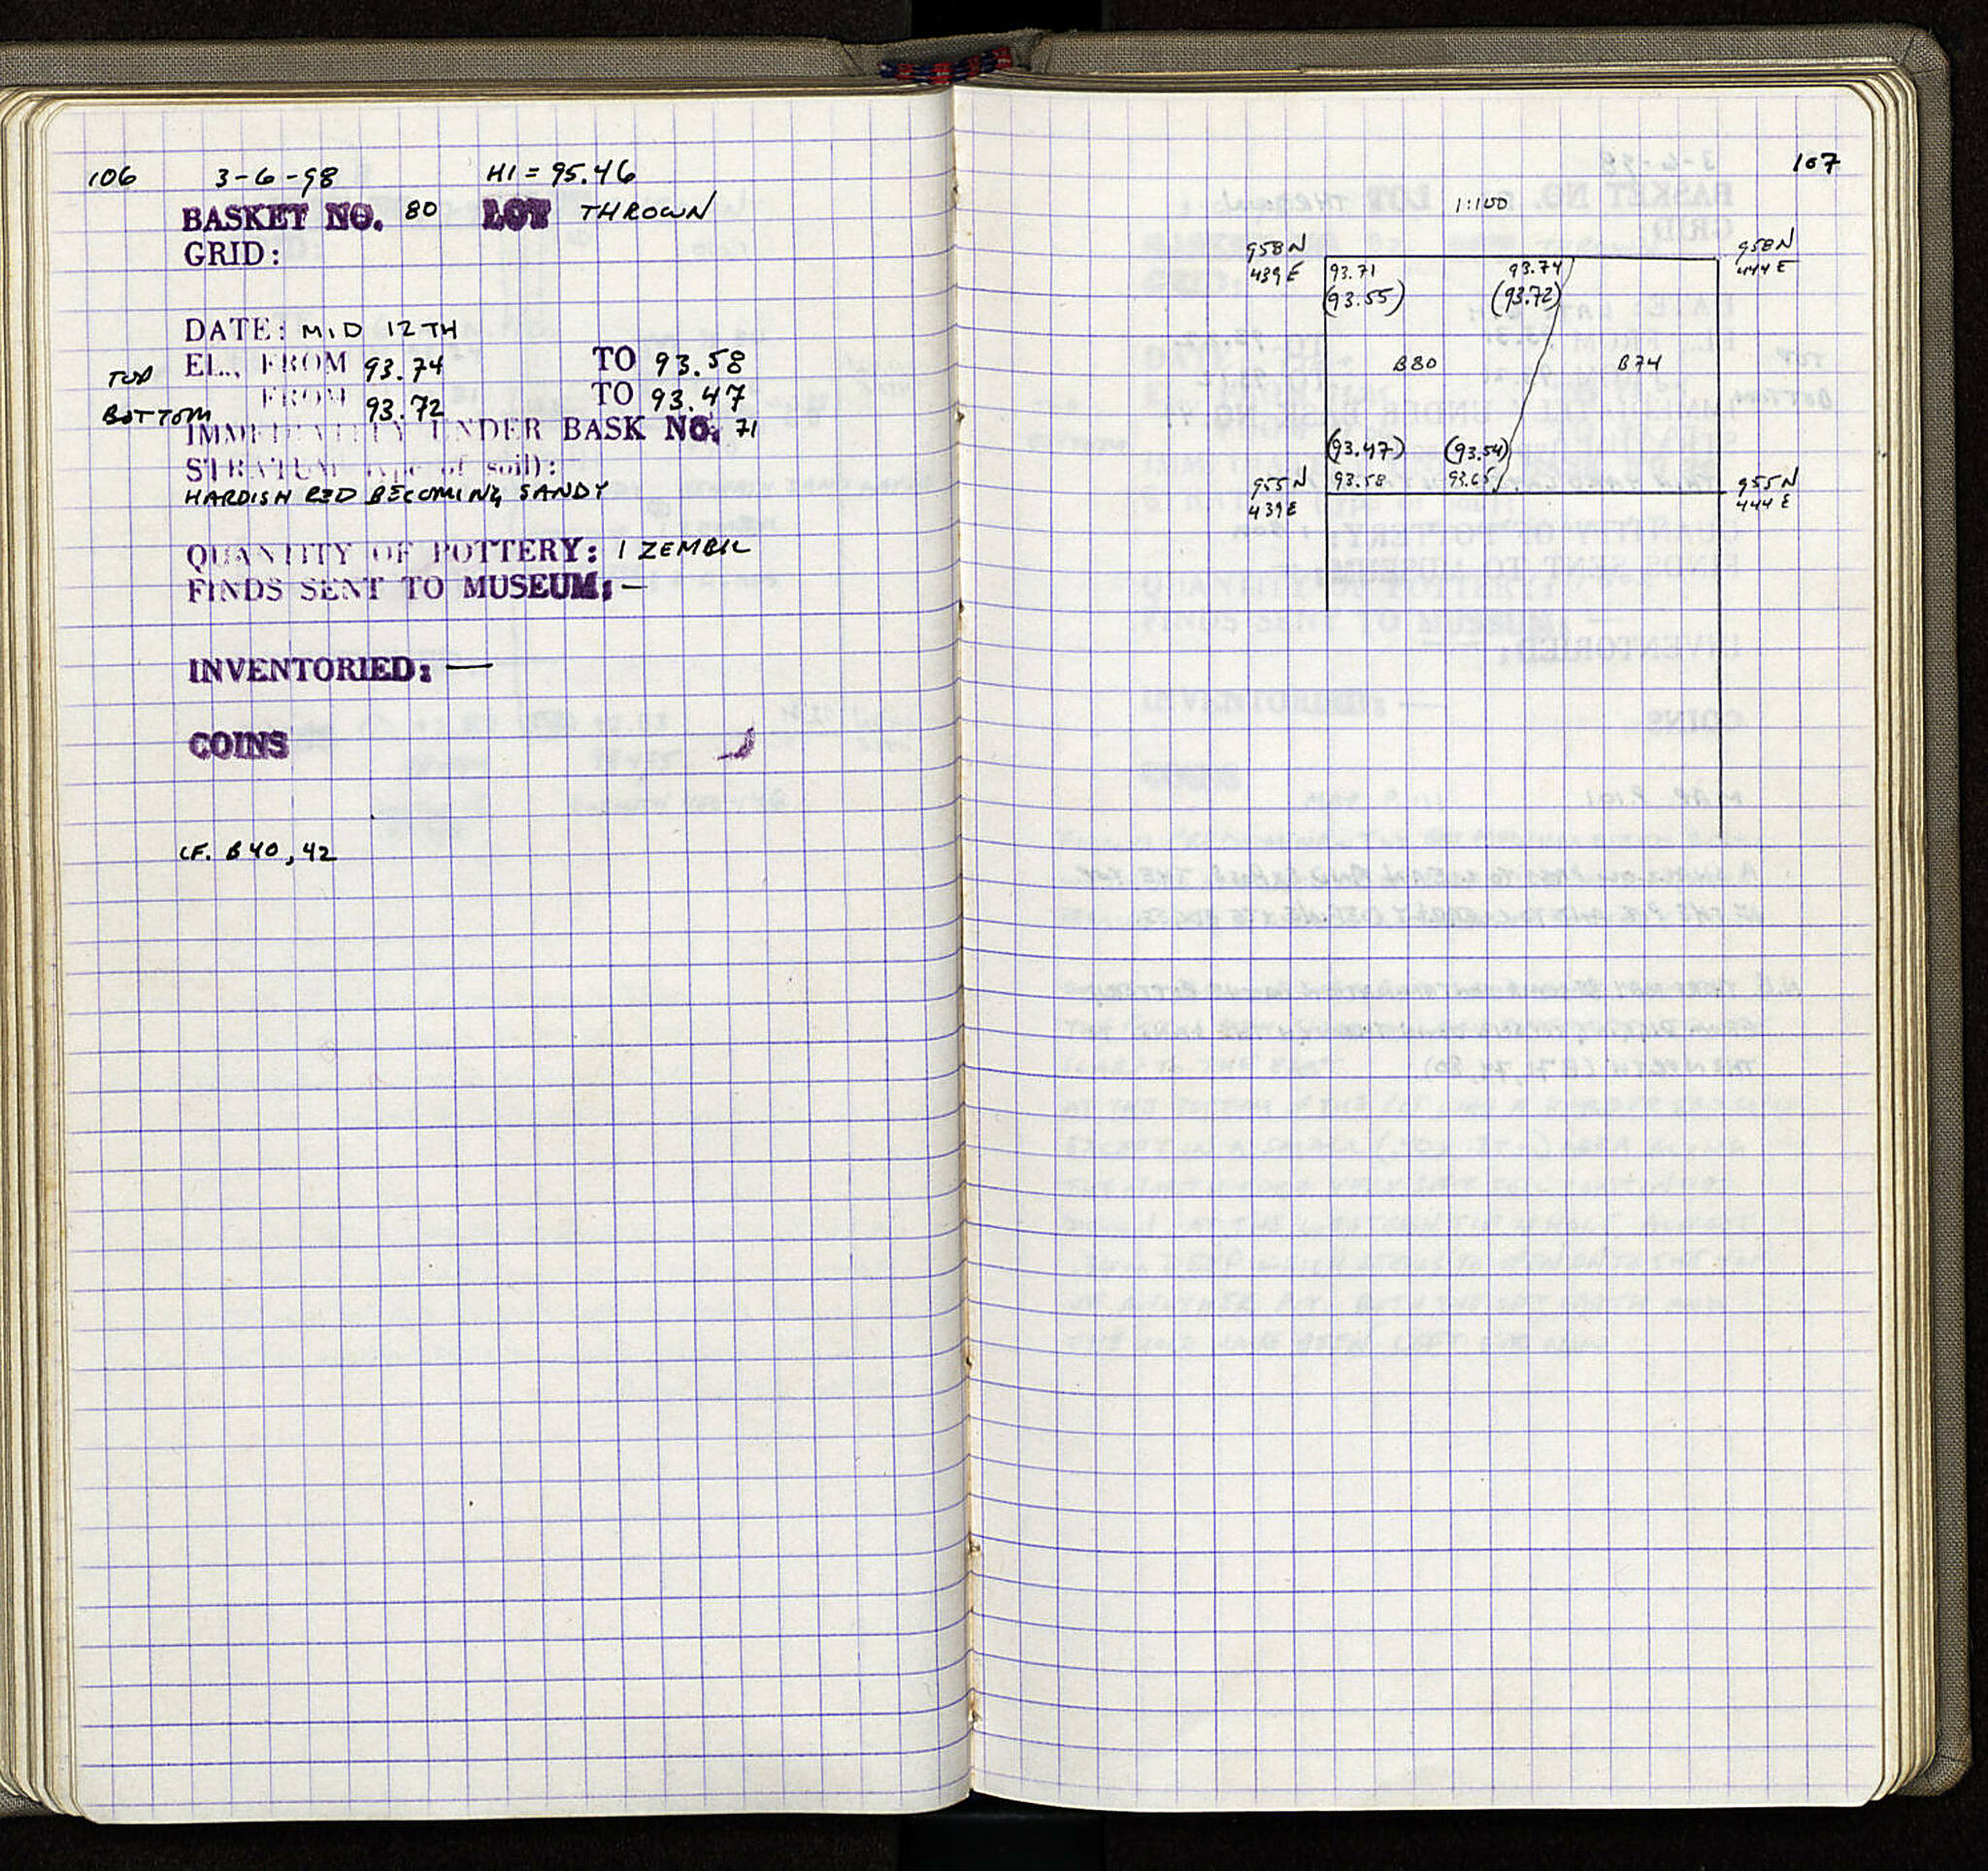 106 3-6-98 HI = 95.46
BASKET NO. 80 LOT THROWN
GRID:
DATE: MID 12TH
TOP EL., FROM 93.74 TO 93.58
BOTTOM FROM 93.72 TO 93.47
IMMEDIATELY UNDER BASK NO. 71
STRATUM (type of soil):
HARDISH RED BECOMING SANDY
QUANTITY OF POTTERY: 1 ZEMBIL
FINDS SENT TO MUSEUM: —
INVENTORIED: —
COINS
CF. B40, 42
107
1:100
958N 958N
439E 93.71 93.74 444E
(93.55) (93.72)
B80 B74
(93.47) (93.54)
955N 93.58 93.65 955N
439E 444E